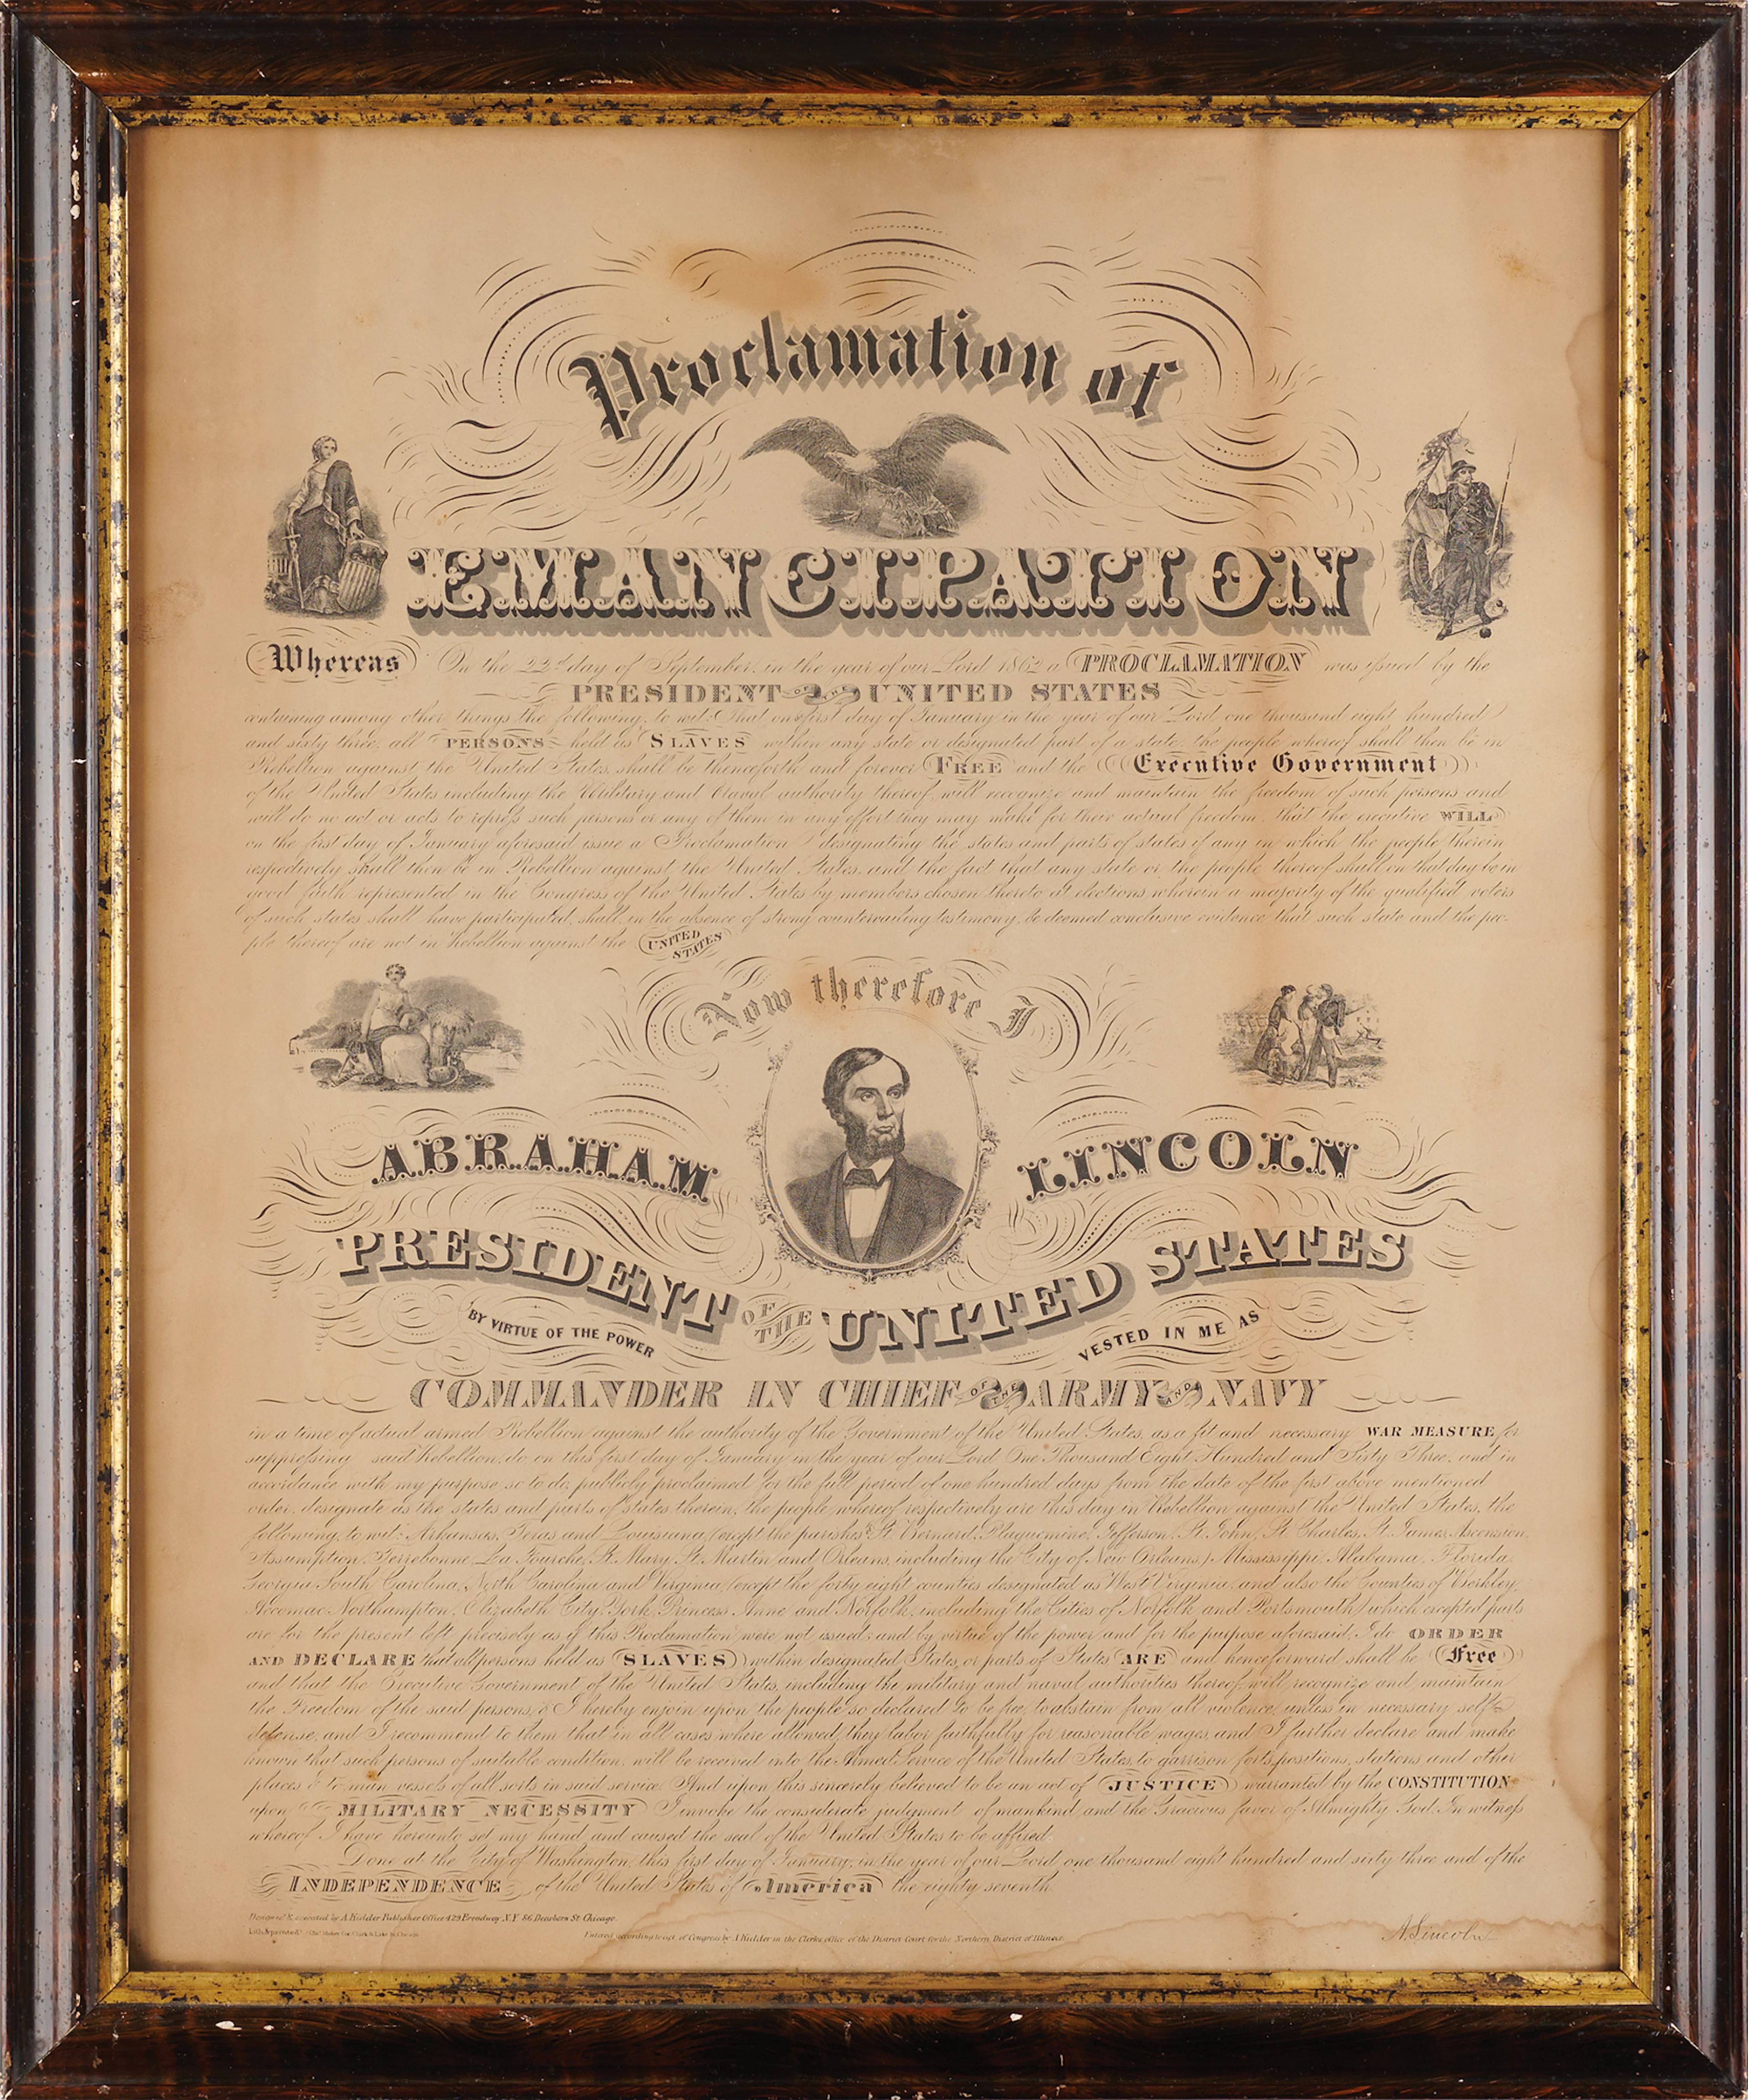 Proclamation of
EMANCIPATION
Whereas On the 22d day of September, in the year of our Lord 1862 a PROCLAMATION was issued by the
PRESIDENT OF THE UNITED STATES
containing among other things the following, to wit: That on first day of January in the year of our Lord one thousand eight hundred
and sixty three, all PERSONS held as SLAVES within any state or designated part of a state, the people whereof shall then be in
Rebellion against the United States, shall be thenceforth and forever FREE and the Executive Government
of the United States including the Military and Naval authority thereof will recognize and maintain the freedom of such persons and
will do no act or acts to repress such persons or any of them in any effort they may make for their actual freedom, that the executive WILL
on the first day of January aforesaid issue a Proclamation designating the states and parts of states if any in which the people therein
respectively shall then be in Rebellion against the United States, and the fact that any state or the people thereof shall on that day be in
good faith represented in the Congress of the United States by members chosen thereto at elections wherein a majority of the qualified voters
of such states shall have participated, shall in the absence of strong countervailing testimony, be deemed conclusive evidence that such state and the peo-
ple thereof are not in Rebellion against the UNITED STATES
Now therefore I
ABRAHAM LINCOLN
PRESIDENT OF THE UNITED STATES
BY VIRTUE OF THE POWER VESTED IN ME AS
COMMANDER IN CHIEF OF THE ARMY AND NAVY
in a time of actual armed Rebellion against the authority of the Government of the United States, as a fit and necessary WAR MEASURE for
suppressing said Rebellion, do, on this first day of January in the year of our Lord One Thousand Eight Hundred and Sixty Three, and in
accordance with my purpose so to do, publicly proclaimed for the full period of one hundred days from the date of the first above mentioned
order, designate as the states and parts of states therein, the people whereof respectively are this day in Rebellion against the United States, the
following, to wit: Arkansas, Texas and Louisiana, (except the parishes St. Bernard, Plaquemine, Jefferson, St. John, St. Charles, St. James, Ascension,
Assumption, Terrebonne, La Fourche, St. Mary, St. Martin and Orleans, including the City of New Orleans) Mississippi, Alabama, Florida,
Georgia South Carolina, North Carolina and Virginia, (except the forty eight counties designated as West Virginia, and also the Counties of Berkley,
Accomac, Northampton, Elizabeth City, York, Princess Anne and Norfolk, including the Cities of Norfolk and Portsmouth) which excepted parts
are for the present left precisely as if this Proclamation were not issued; and by virtue of the power and for the purpose aforesaid, I do ORDER
AND DECLARE that all persons held as SLAVES within designated States, or parts of States ARE and henceforward shall be Free
and that the Executive Government of the United States, including the military and naval authorities thereof, will recognize and maintain
the Freedom of the said persons, & I hereby enjoin upon the people so declared to be free, to abstain from all violence, unless in necessary self
defense, and I recommend to them that in all cases where allowed, they labor faithfully for reasonable wages, and I further declare and make
known that such persons of suitable condition, will be received into the Armed Service of the United States, to garrison forts, positions, stations and other
places & to man vessels of all sorts in said service. And upon this sincerely believed to be an act of JUSTICE warranted by the CONSTITUTION
upon MILITARY NECESSITY I invoke the considerate judgment of mankind and the Gracious favor of Almighty God. In witness
whereof I have hereunto set my hand and caused the seal of the United States to be affixed.
Done at the City of Washington, this first day of January, in the year of our Lord one thousand eight hundred and sixty three and of the
INDEPENDENCE of the United States of America the eighty seventh.
Designed & executed by A Kidder Publisher Office 429 Broadway N.Y 86 Dearborn St Chicago.
Entered according to act of Congress by A Kidder in the Clerks office of the District Court for the Northern District of Illinois.
A. Lincoln